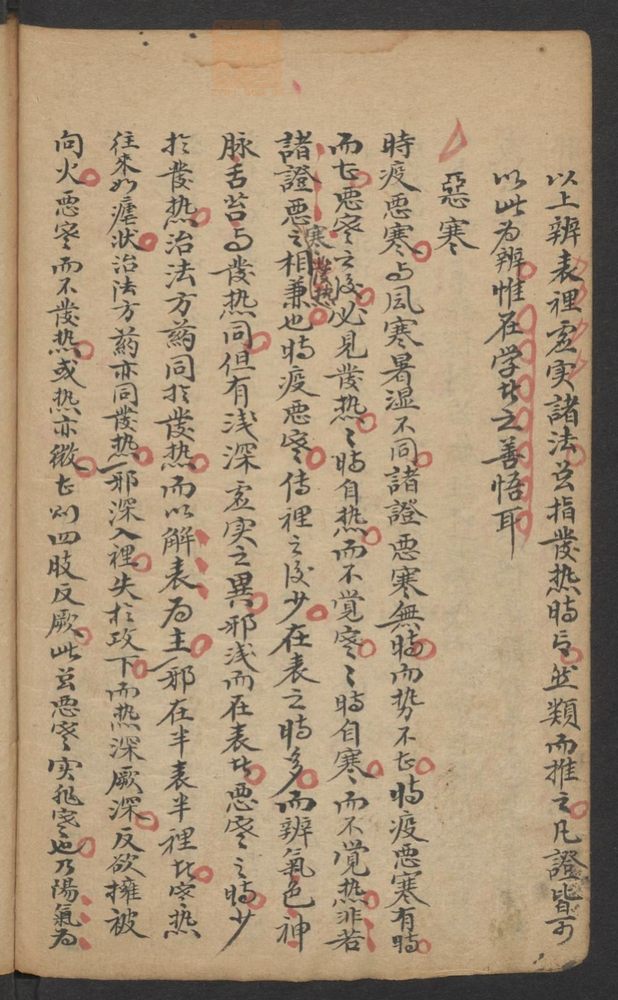 以上辨表裡虛实諸法並指發热時言然類而推之凡證皆可
以此为辨惟在学者之善悟耳
惡寒
時疫惡寒与风寒暑湿不同諸證惡寒無時而势不甚時疫惡寒有時
而甚惡寒之後必見發热〻時自热而不覚寒〻時自寒而不覚热非若
諸證惡寒發热之相兼也時疫惡寒传裡之後少在表之時多而辨氣色神
脉舌苔与發热同但有浅深虛実之異邪浅而在表者惡寒之時少
於發热治法方药同於發热而以解表为主邪在半表半裡者寒热
往来如瘧状治法方药亦同發热邪深入裡失於攻下而热深厥深反欲擁被
向火惡寒而不發热或热亦微甚则四肢反厥此並惡寒实非寒也乃陽氣为